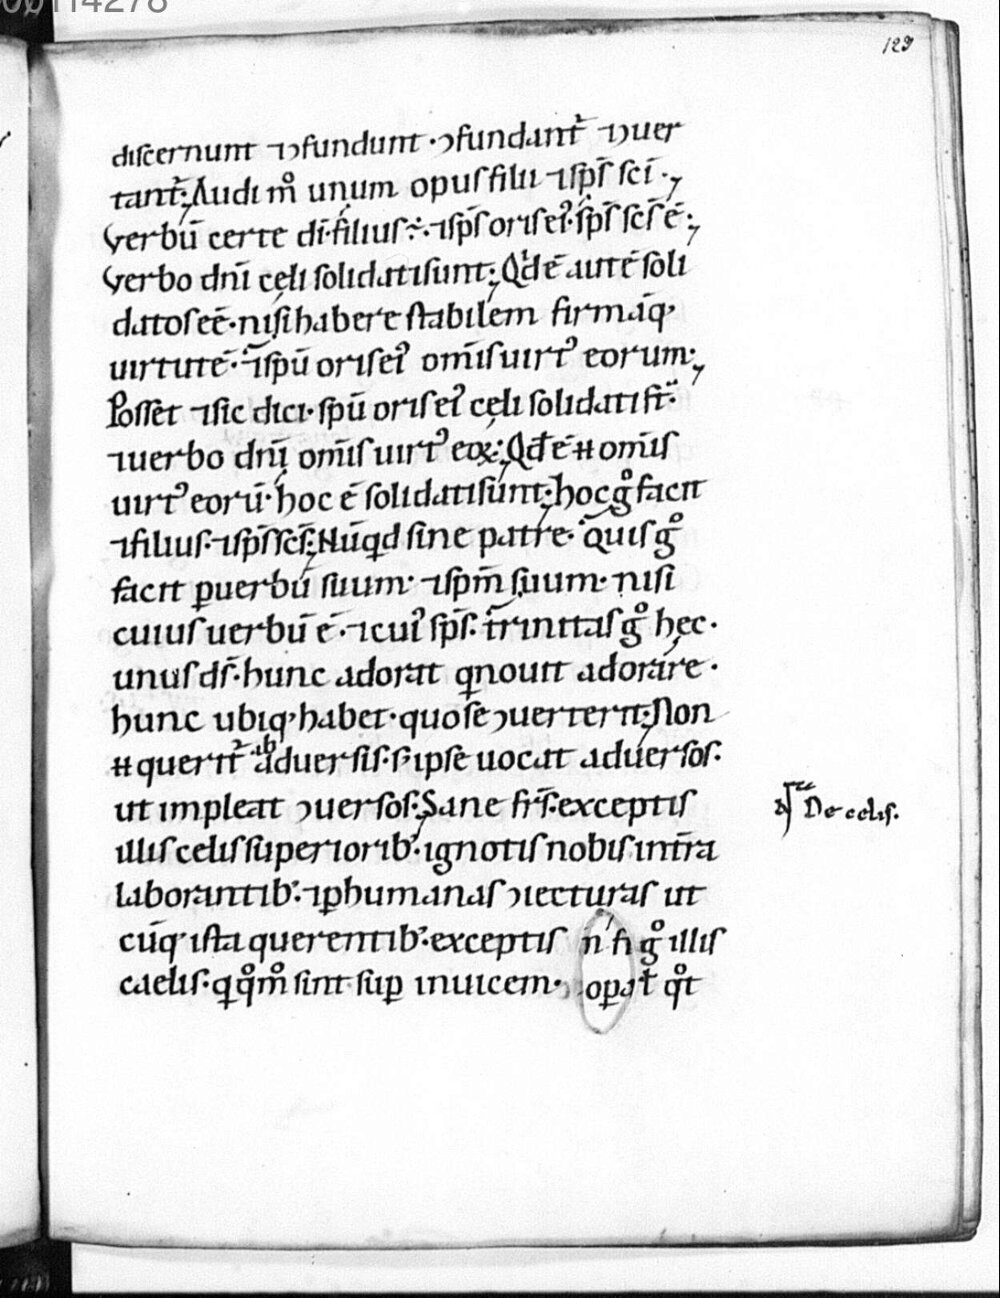 00114278
129
discernunt ⁊ ↄfundunt · ↄfundant᷑ ⁊ ↄuer
tant᷑; Audi m̊ unum opus filii ⁊ sp̄s sc̄i ·,
Verbū certe dī · filius ÷ · ⁊ sp̄s oris eiꝰ · sp̄s sc̄s ē ;
Verbo dn̄i cęli solidati sunt; Qd̓ ē autē soli
datos eē · nisi habere stabilem firmāq;
uirtutē · ⁊ sp̄ū oris eiꝰ om̄is uirtꝰ eorum ;
Posset ⁊ sic dici · sp̄ū oris eiꝰ cęli solidati st̄ ·
⁊ uerbo dn̄i om̄is uirtꝰ eoꝝ ; Qđ ē n̄ om̄is
uirtꝰ eorū · hoc ē solidati sunt; hoc g̊ facit
⁊ filius · ⁊ sp̄s sc̄s; Nūqd sine patre · Quis g̊
facit ꝑ uerbū suum · ⁊ sp̄m suum · nisi
cuius uerbū ē · ⁊ cuiꝰ sp̄s · trinitas g̊ hęc ·
unus ds̄ · hunc adorat q nouit adorare ·
hunc ubiq; habet · quo se ↄuerterit; Non
n̄ querit᷑ ab aduersis · s; ipse uocat aduersos ·
ut impleat ↄuersos; Sane fr̄s · exceptis
illis celis superiorib; · ignotis nobis in tr̄a
laborantib; · ⁊ ꝑ humanas ↄiecturas ut
cūq; ista querentib; · exceptis n̄ fi g̊ illis
caelis · q q̊m̊ sint suꝑ inuicem · oꝑat q̊t
De celis.